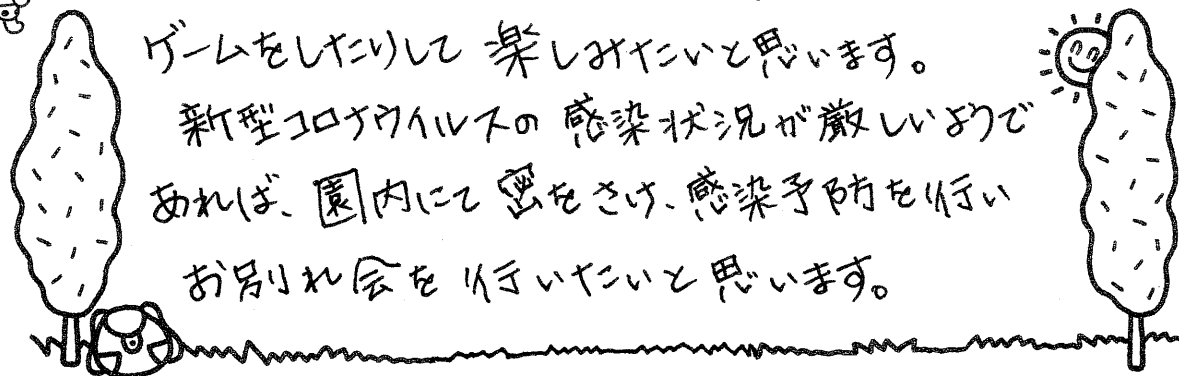 ゲームをしたりして 楽しみたいと思います。
新型コロナウイルスの 感染状況が厳しいようで
あれば、園内にて 密をさけ、感染予防を行い
お別れ会を 行いたいと思います。